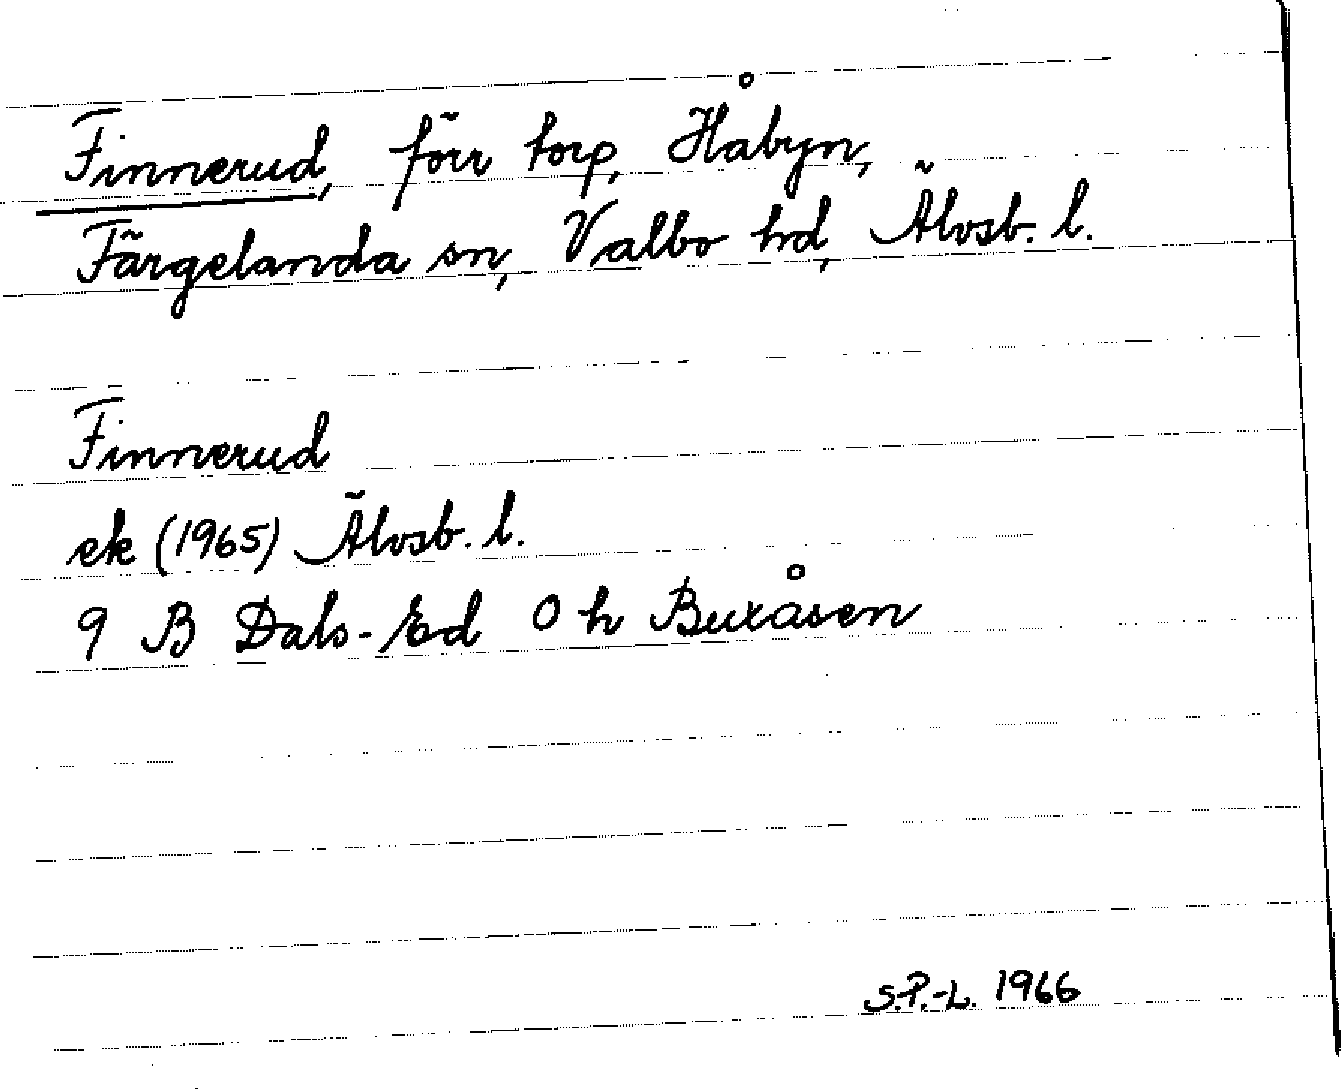 Finnerud, förr torp, Håbyn,
Färgelanda sn, Valbo hd, Älvsb. l.
Finnerud
ek (1965) Älvsb. l.
9 B Dals-Ed 0 h Buxåsen
S.P.-L. 1966